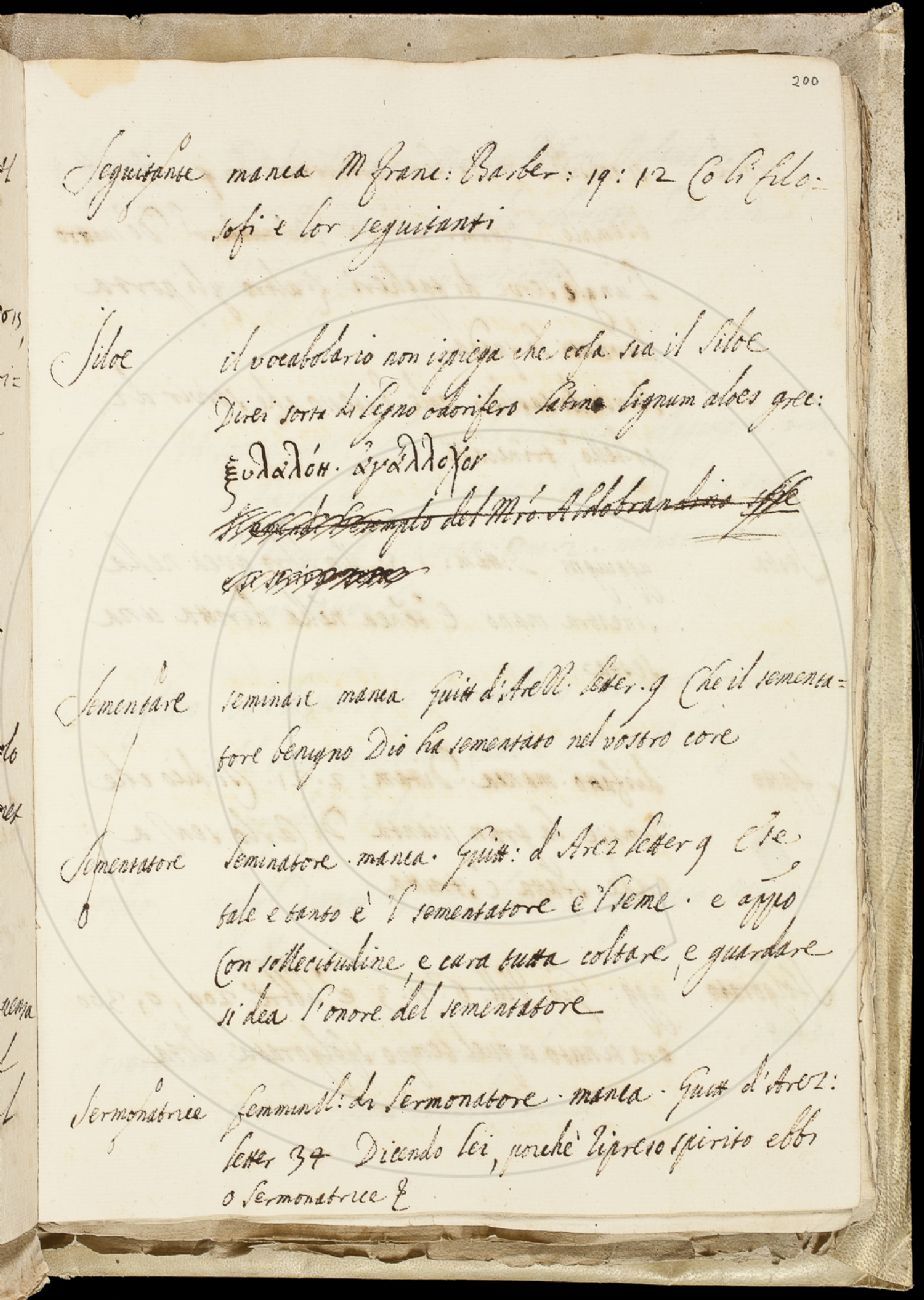 200
Seguitante manca M Franc: Barber: 19: 12 Co li filo=
sofi e lor seguitanti
Siloe il vocabolario non ispiega che cosa sia il Siloe
Direi sorta di legno odorifero latine lignum aloes grec:
ξυλαλόη. ἀγάλλοχον
del Mro Aldobrandino
Sementare seminare manca Guitt d'Arezz. letter. 9 Che il sementa=
tore benigno Dio ha sementato nel vostro core
Sementatore Seminatore. manca. Guitt: d'Arez letter 9 E se
tale e tanto è 'l sementatore e 'l seme. e appo
Con sollecitudine, e cura tutta coltare, e guardare
si dea l'onore del sementatore
Sermonatrice femminil: di Sermonatore. manca. Guitt d'Arez:
letter 34 Dicendo lei, poichè ripreso spirito ebbi
o Sermonatrice